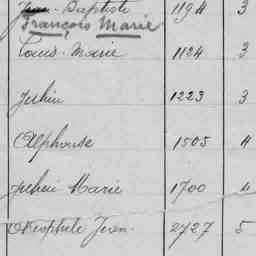 Jean-Baptiste 1194 3
François Marie
Louis-Marie 1124 3
Julien 1223 3
Alphonse 1505 4
Julien Marie 1700 4
Théophile Jean 2727 5